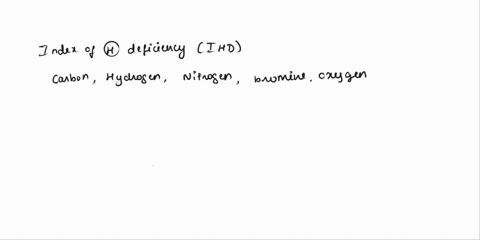 Index of H deficiency (IHD)
Carbon, Hydrogen, Nitrogen, bromine. oxygen